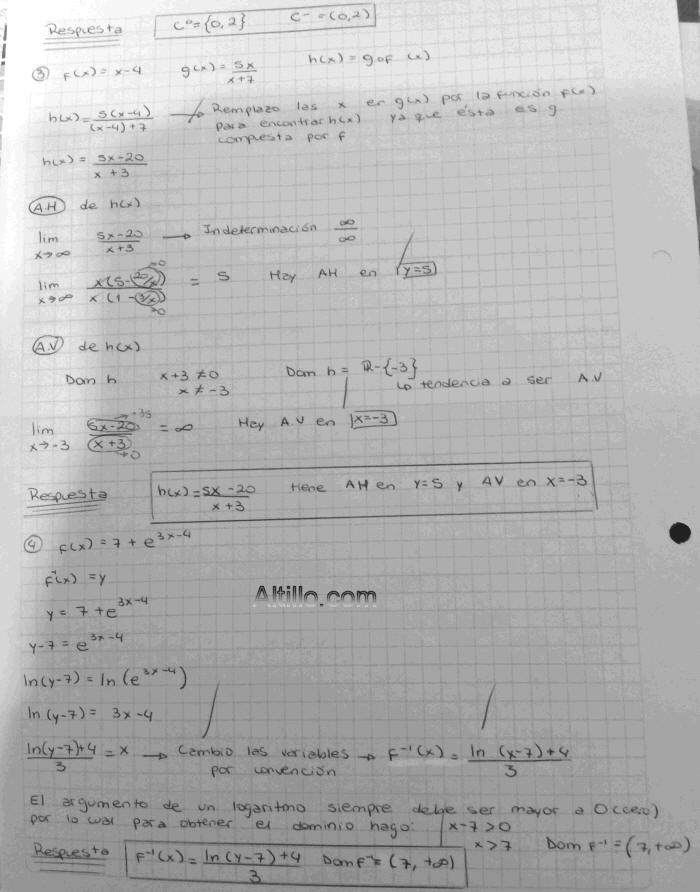 Respuesta C⁰={0,2} C⁻=(0,2)
③ f(x)= x-4 g(x)= 5x/(x+7) h(x)= gof (x)
h(x)= 5(x-4)/((x-4)+7) → Remplazo las x en g(x) por la función f(x)
para encontrar h(x) ya que ésta es g
compuesta por f
h(x)= (5x-20)/(x+3)
A.H de h(x)
lim x→∞ (5x-20)/(x+3) → Indeterminación ∞/∞
lim x→∞ x(5-20/x)/x(1-3/x) = 5 Hay AH en y=5
→0
→0
A.V de h(x)
Dom h x+3≠0 Dom h = R-{-3}
x≠-3 ↳ tendencia a ser A.V
lim x→-3 (5x-20)/(x+3) = ∞ Hay A.V en x=-3
→-35
→0
Respuesta h(x)= (5x-20)/(x+3) tiene AH en y=5 y AV en x=-3
④ f(x)= 7 + e^(3x-4)
f(x) = y
y = 7+e^(3x-4)
y-7 = e^(3x-4)
ln(y-7) = ln(e^(3x-4))
ln(y-7) = 3x-4
(ln(y-7)+4)/3 = x → Cambio las variables → F⁻¹(x) = (ln (x-7)+4)/3
por convención
El argumento de un logaritmo siempre debe ser mayor a 0(cero)
por lo cual para obtener el dominio hago: x-7>0
x>7 Dom F⁻¹ = (7,+∞)
Respuesta F⁻¹(x) = (ln(y-7)+4)/3 Dom F⁻¹= (7, +∞)
Altillo.com